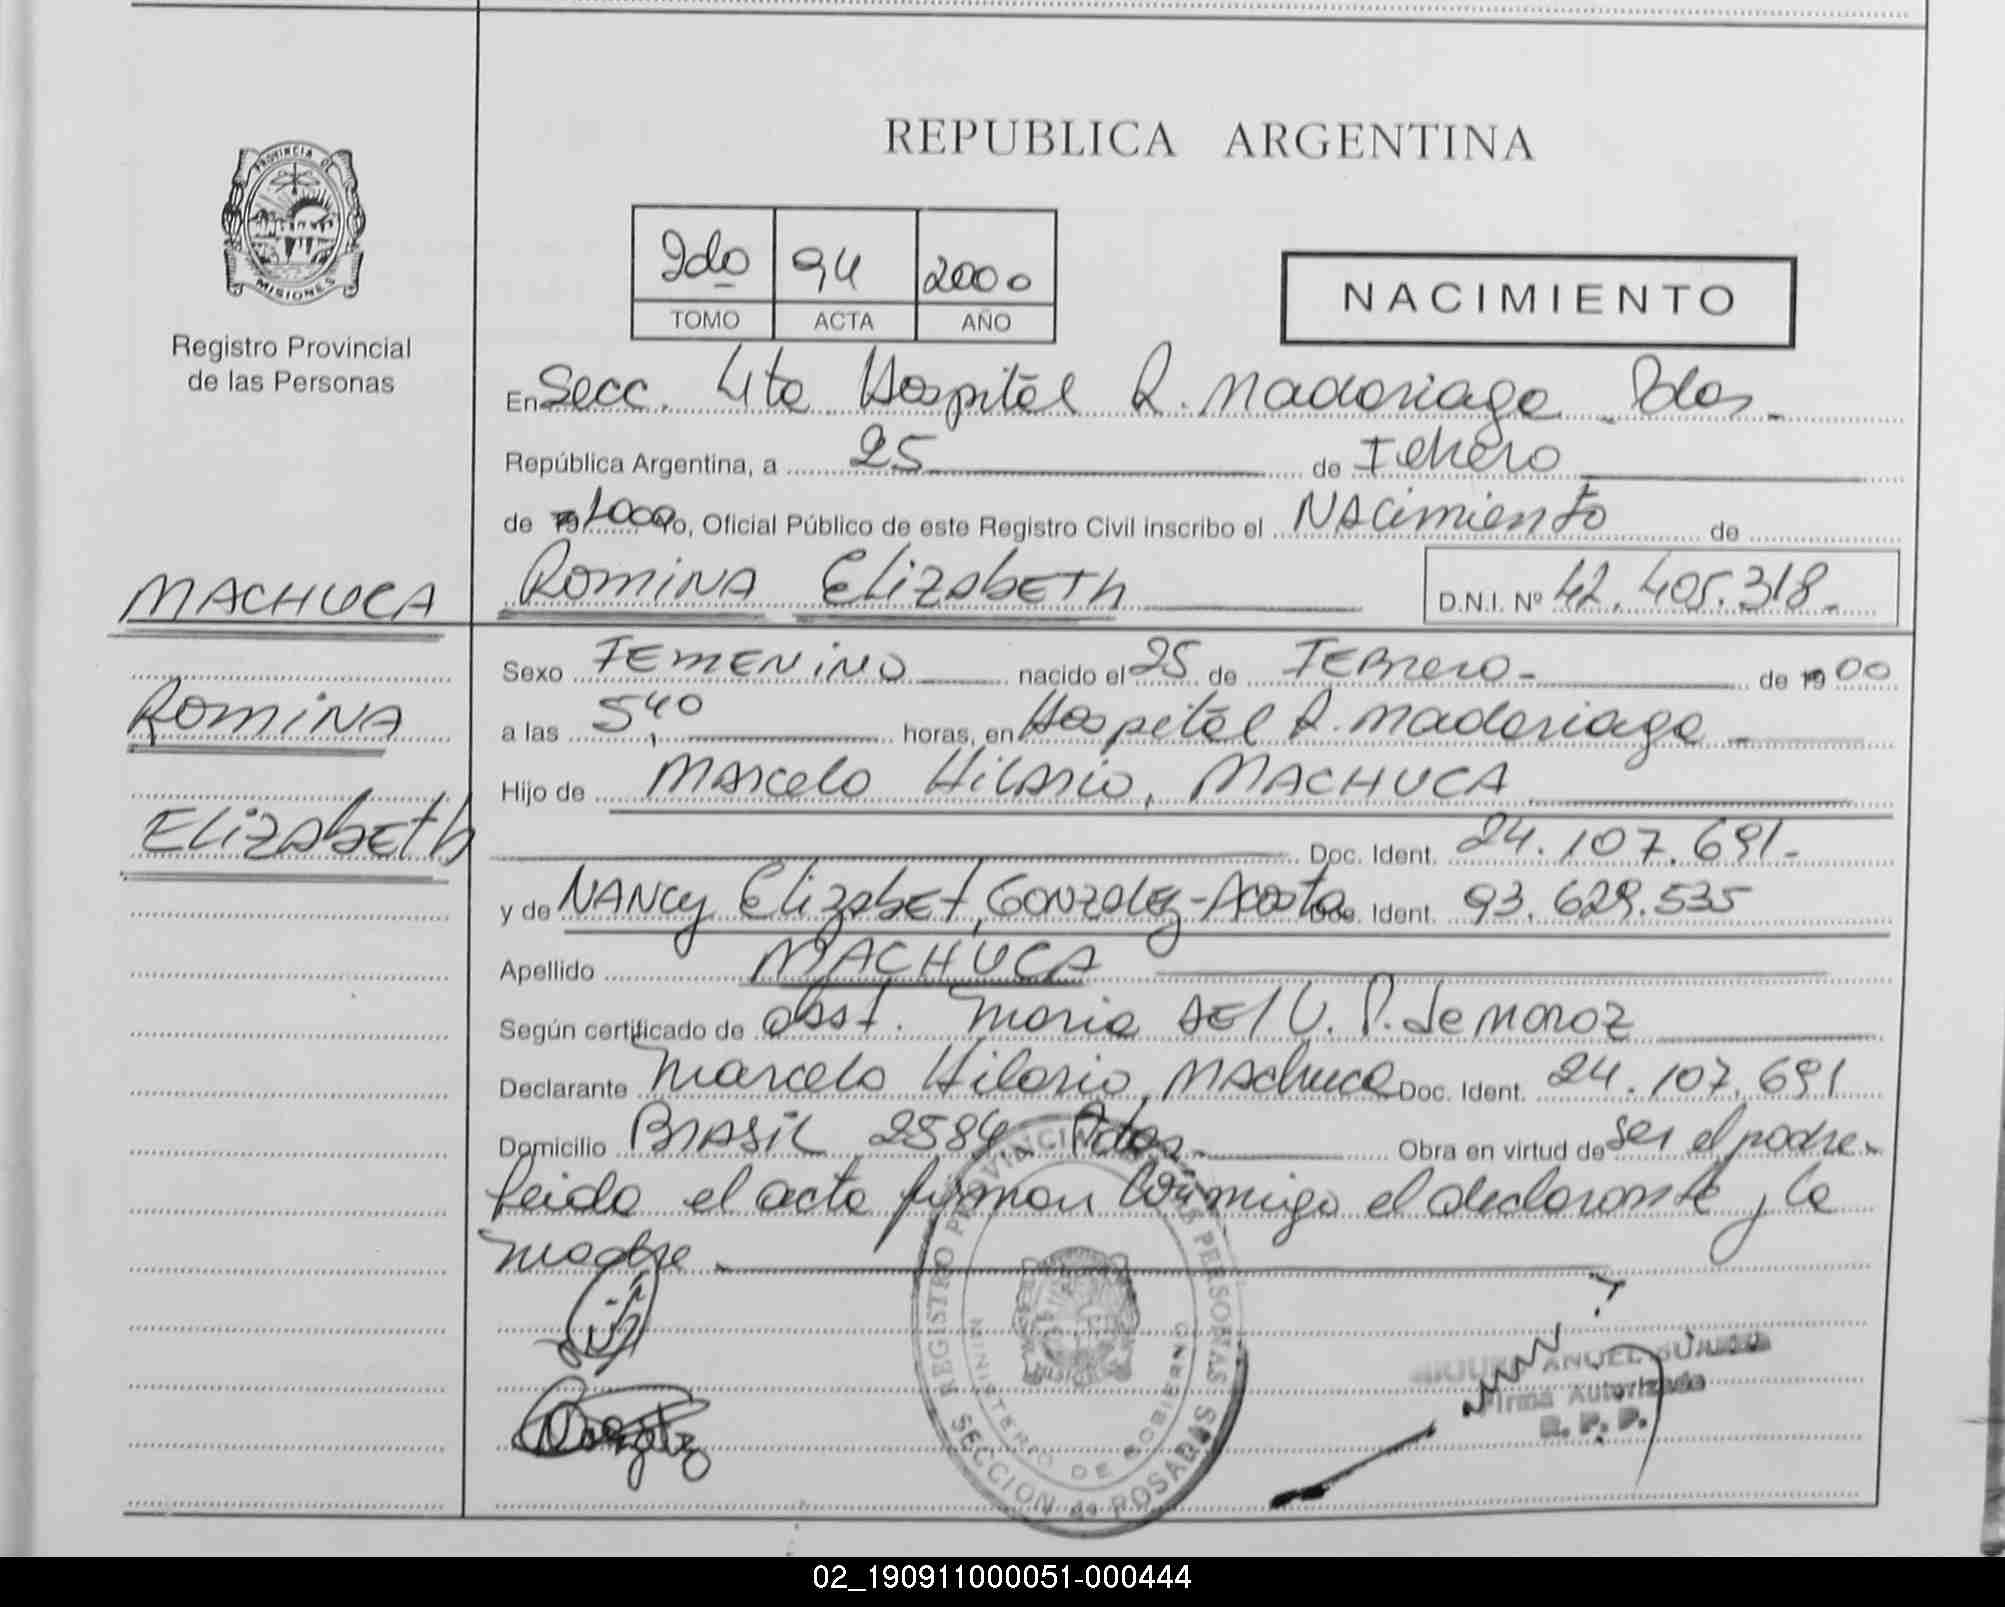 REPUBLICA ARGENTINA
PROVINCIA DE
MISIONES
Registro Provincial
de las Personas
2do 94 2000
TOMO ACTA AÑO
NACIMIENTO
En Secc. 4ta Hospital R. Madariaga Pdas.
República Argentina, a 25 de Febrero
de 2000 yo, Oficial Público de este Registro Civil inscribo el Nacimiento de
MACHUCA
Romina Elizabeth D.N.I. Nº 42.405.318.
Romina
Elizabeth
Sexo FEMENINO nacido el 25 de FEBrero de 1900
a las 5,40 horas, en Hospital R. Madariaga
Hijo de Marcelo Hilario, MACHUCA
Doc. Ident. 24.107.691.
y de NANCY Elizabet, Gonzalez-Acosta Doc. Ident. 93.629.535
Apellido MACHUCA
Según certificado de obst. Maria DEl U. P. de Moroz
Declarante Marcelo Hilario, Machuca Doc. Ident. 24.107.691
Domicilio BrAsiL 2584 Pdas. Obra en virtud de ser el padre.
leida el acta firman conmigo el declarante y la
madre.
REGISTRO PROVINCIAL DE LAS PERSONAS
MINISTERIO DE GOBIERNO
SECCION 4a POSADAS
Firma Autorizada
R. P. P.
02_190911000051-000444